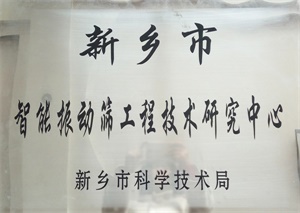 新乡市
智能振动筛工程技术研究中心
新乡市科学技术局